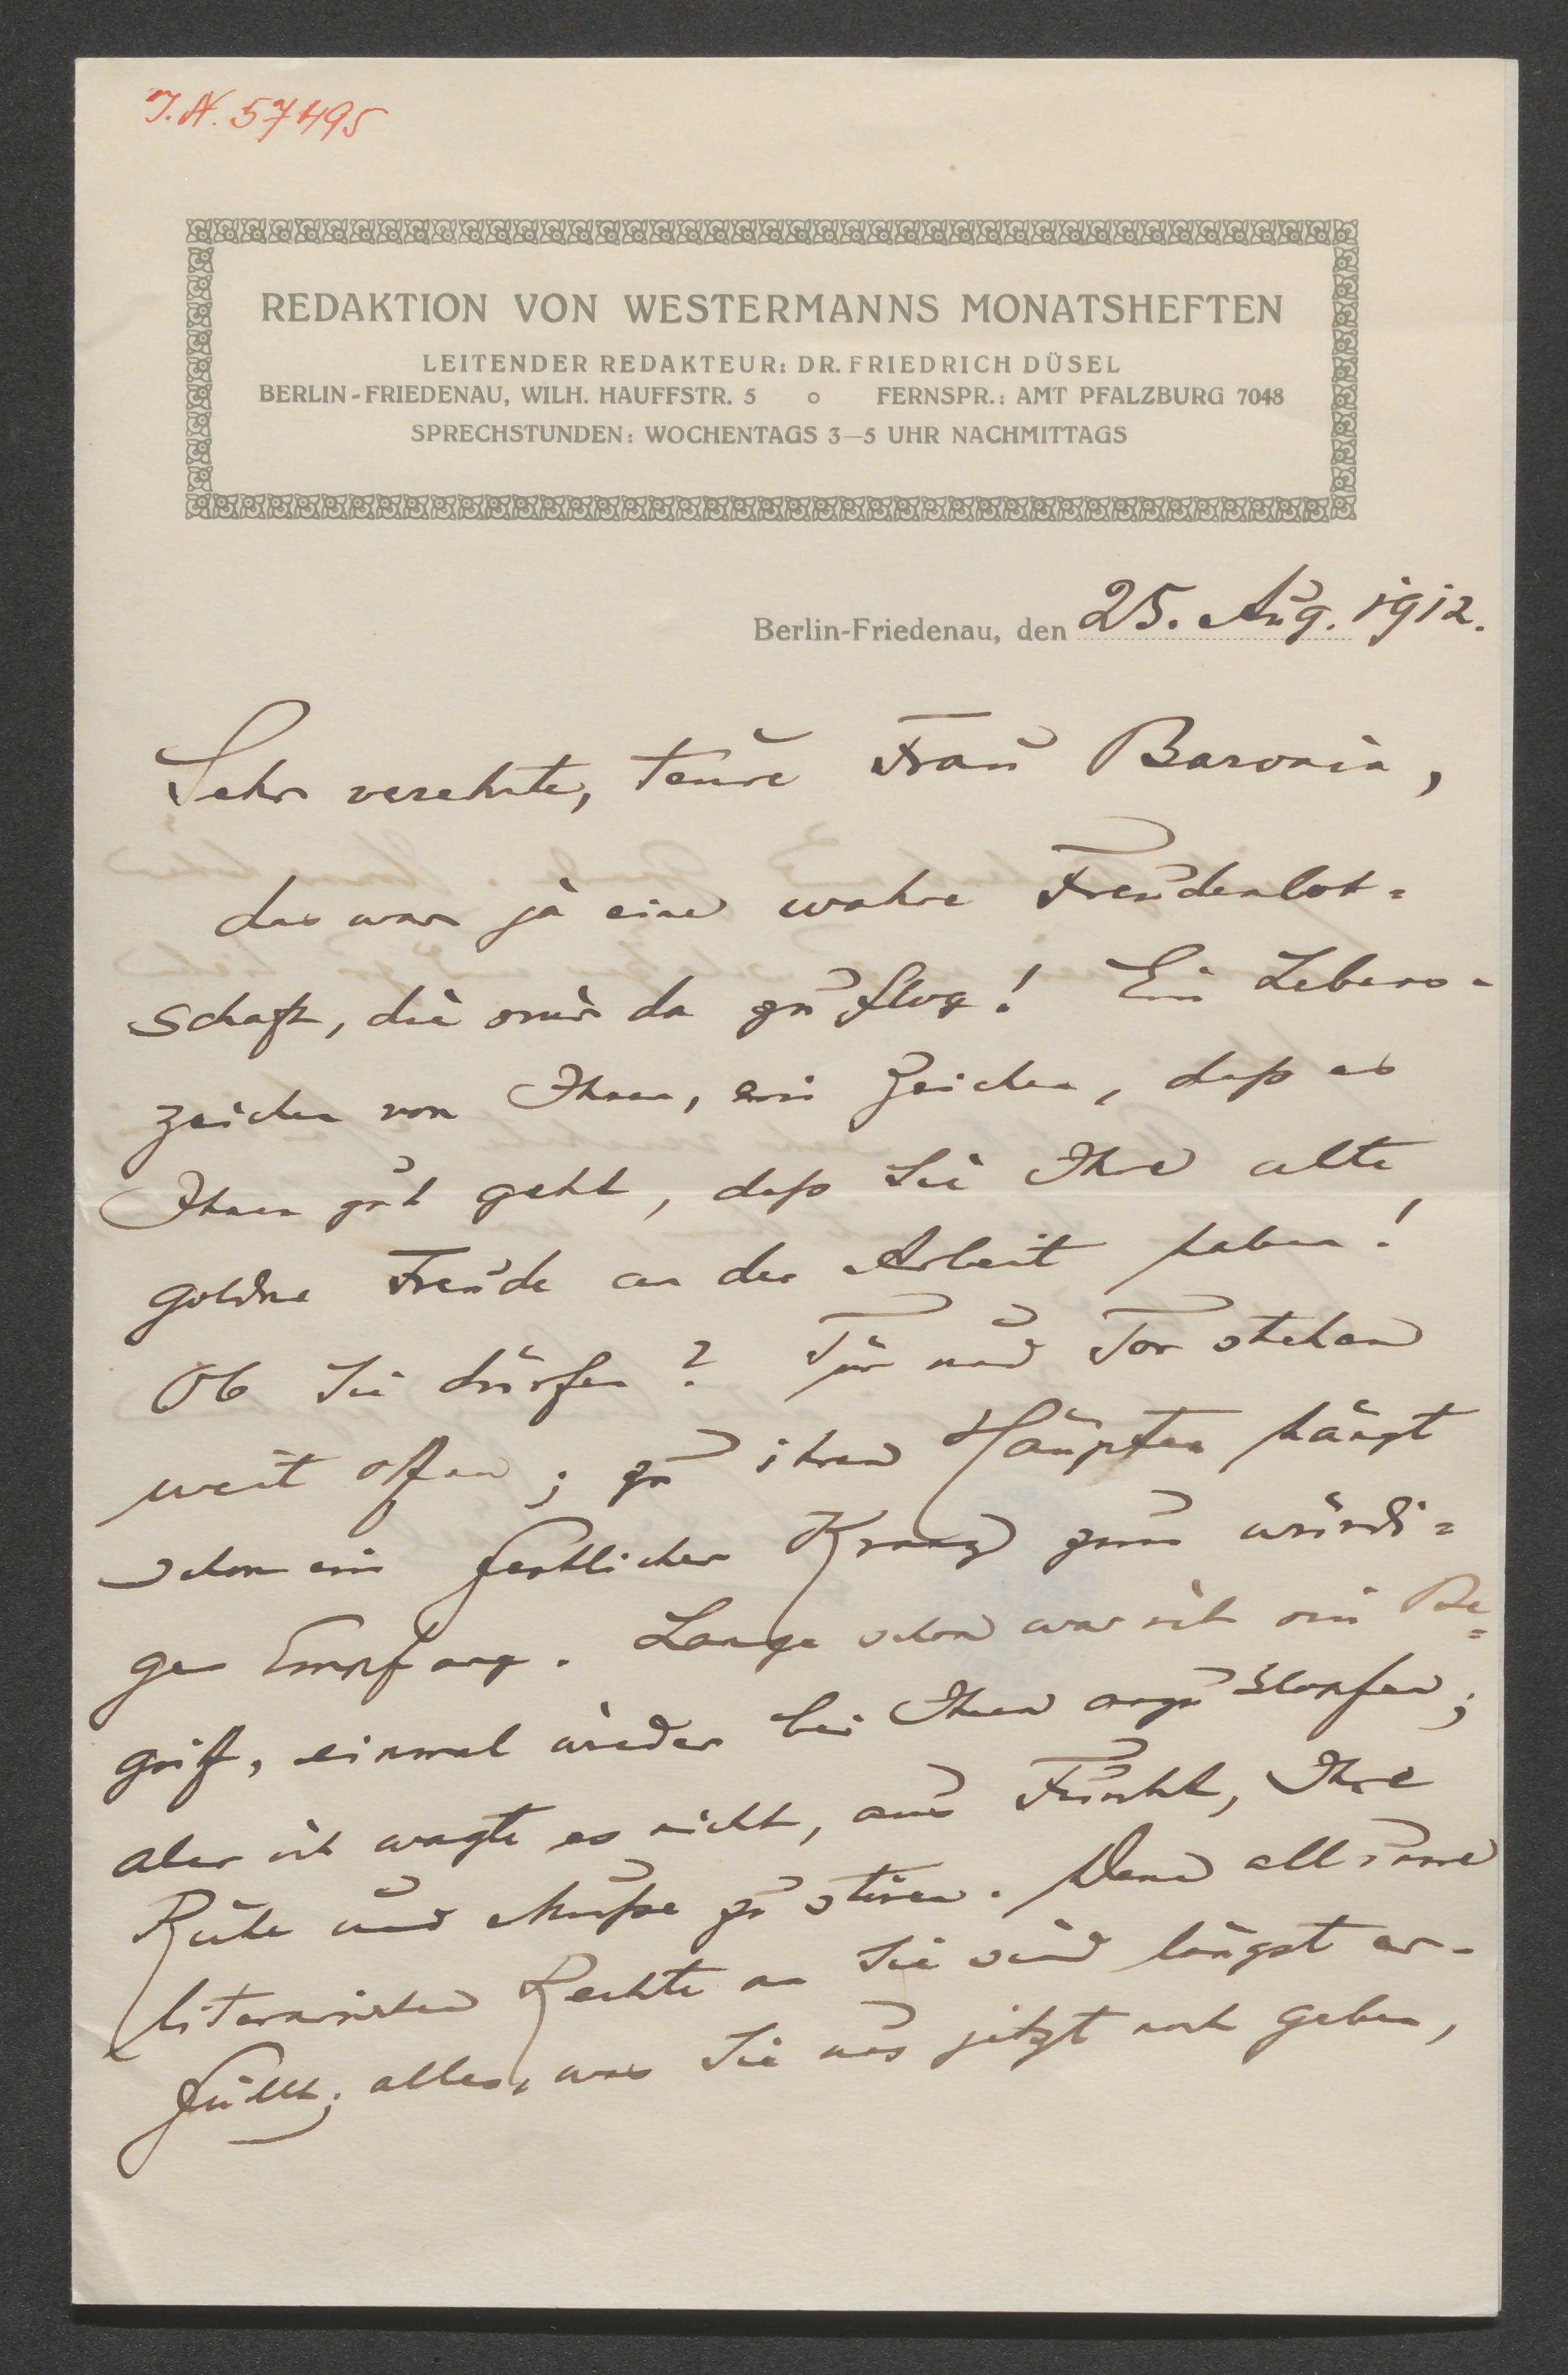 J.N. 57495
REDAKTION VON WESTERMANNS MONATSHEFTEN
LEITENDER REDAKTEUR: DR. FRIEDRICH DÜSEL
BERLIN-FRIEDENAU, WILH. HAUFFSTR. 5 o FERNSPR.: AMT PFALZBURG 7048
SPRECHSTUNDEN: WOCHENTAGS 3–5 UHR NACHMITTAGS
Berlin-Friedenau, den 25. Aug. 1912.
Sehr verehrte, teure Frau Baronin,
das war ja eine wahre Freudenbot=
schaft, die mir da zuflog! Ein Lebens-
zeichen von Ihnen, ein Zeichen, daß es
Ihnen gut geht, daß Sie Ihre alte
goldne Freude an der Arbeit haben!
Ob Sie dürfen? Tür und Tor stehen
weit offen; zu ihren Häupten hängt
schon ein festlicher Kranz zum würdi=
gen Empfang. Lange schon war ich im Be=
griff, einmal wieder bei Ihnen anzuklopfen;
aber ich wagte es nicht, aus Furcht, Ihre
Ruhe und Muße zu stören. Denn all unsre
literarischen Rechte an Sie sind längst er-
füllt; alles, was Sie uns jetzt noch geben,